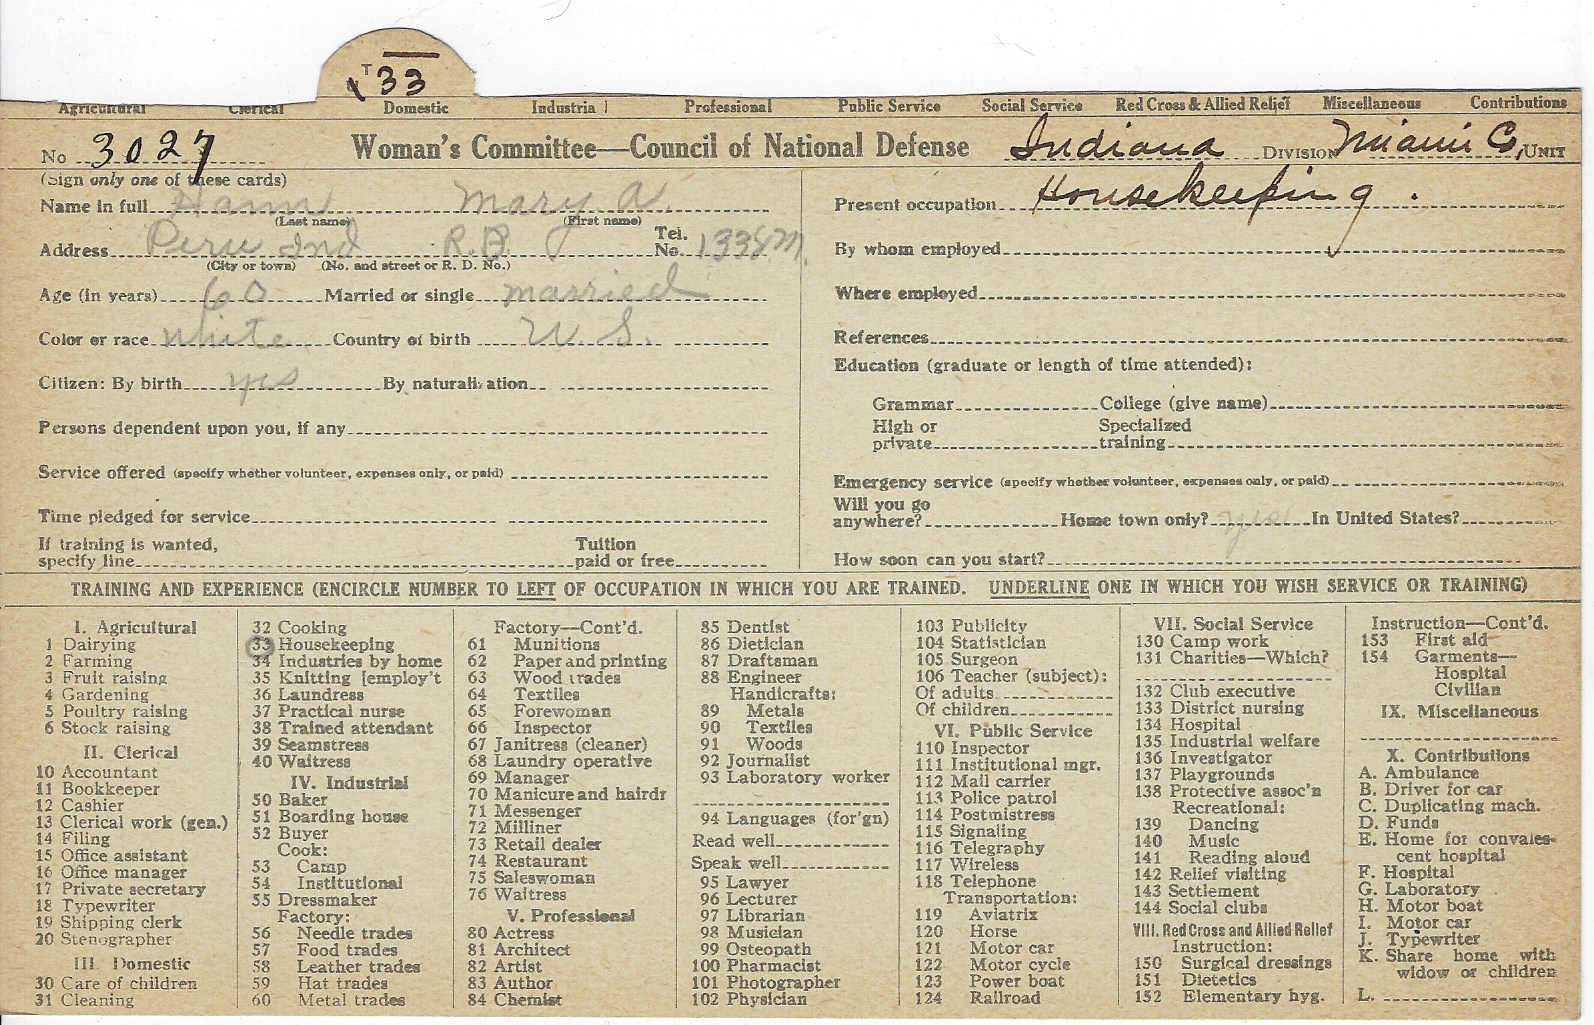 T 33
Agricultural Clerical Domestic Industrial Professional Public Service Social Service Red Cross & Allied Relief Miscellaneous Contributions
No 3027 Woman's Committee—Council of National Defense Indiana DIVISION Miami Co, UNIT
(Sign only one of these cards)
Name in full Mary A.
(Last name) (First name)
Address Peru Ind R.R. Tel. No. 1334M
(City or town) (No. and street or R. D. No.)
Age (in years) 60 Married or single married
Color or race White Country of birth U. S.
Citizen: By birth yes By naturalization
Persons dependent upon you, if any
Service offered (specify whether volunteer, expenses only, or paid)
Time pledged for service
If training is wanted, Tuition
specify line paid or free
Present occupation Housekeeping.
By whom employed
Where employed
References
Education (graduate or length of time attended):
Grammar College (give name)
High or Specialized
private training
Emergency service (specify whether volunteer, expenses only, or paid)
Will you go
anywhere? Home town only? yes In United States?
How soon can you start?
TRAINING AND EXPERIENCE (ENCIRCLE NUMBER TO LEFT OF OCCUPATION IN WHICH YOU ARE TRAINED. UNDERLINE ONE IN WHICH YOU WISH SERVICE OR TRAINING)
I. Agricultural
1 Dairying
2 Farming
3 Fruit raising
4 Gardening
5 Poultry raising
6 Stock raising
II. Clerical
10 Accountant
11 Bookkeeper
12 Cashier
13 Clerical work (gen.)
14 Filing
15 Office assistant
16 Office manager
17 Private secretary
18 Typewriter
19 Shipping clerk
20 Stenographer
III. Domestic
30 Care of children
31 Cleaning
32 Cooking
33 Housekeeping
34 Industries by home
35 Knitting [employ't
36 Laundress
37 Practical nurse
38 Trained attendant
39 Seamstress
40 Waitress
IV. Industrial
50 Baker
51 Boarding house
52 Buyer
Cook:
53 Camp
54 Institutional
55 Dressmaker
Factory:
56 Needle trades
57 Food trades
58 Leather trades
59 Hat trades
60 Metal trades
Factory—Cont'd.
61 Munitions
62 Paper and printing
63 Wood trades
64 Textiles
65 Forewoman
66 Inspector
67 Janitress (cleaner)
68 Laundry operative
69 Manager
70 Manicure and hairdr
71 Messenger
72 Milliner
73 Retail dealer
74 Restaurant
75 Saleswoman
76 Waitress
V. Professional
80 Actress
81 Architect
82 Artist
83 Author
84 Chemist
85 Dentist
86 Dietician
87 Draftsman
88 Engineer
Handicrafts:
89 Metals
90 Textiles
91 Woods
92 Journalist
93 Laboratory worker
94 Languages (for'gn)
Read well
Speak well
95 Lawyer
96 Lecturer
97 Librarian
98 Musician
99 Osteopath
100 Pharmacist
101 Photographer
102 Physician
103 Publicity
104 Statistician
105 Surgeon
106 Teacher (subject):
Of adults
Of children
VI. Public Service
110 Inspector
111 Institutional mgr.
112 Mail carrier
113 Police patrol
114 Postmistress
115 Signaling
116 Telegraphy
117 Wireless
118 Telephone
Transportation:
119 Aviatrix
120 Horse
121 Motor car
122 Motor cycle
123 Power boat
124 Railroad
VII. Social Service
130 Camp work
131 Charities—Which?
132 Club executive
133 District nursing
134 Hospital
135 Industrial welfare
136 Investigator
137 Playgrounds
138 Protective assoc'n
Recreational:
139 Dancing
140 Music
141 Reading aloud
142 Relief visiting
143 Settlement
144 Social clubs
VIII. Red Cross and Allied Relief
Instruction:
150 Surgical dressings
151 Dietetics
152 Elementary hyg.
Instruction—Cont'd.
153 First aid
154 Garments—
Hospital
Civilian
IX. Miscellaneous
X. Contributions
A. Ambulance
B. Driver for car
C. Duplicating mach.
D. Funds
E. Home for convales-
cent hospital
F. Hospital
G. Laboratory
H. Motor boat
I. Motor car
J. Typewriter
K. Share home with
widow or children
L.